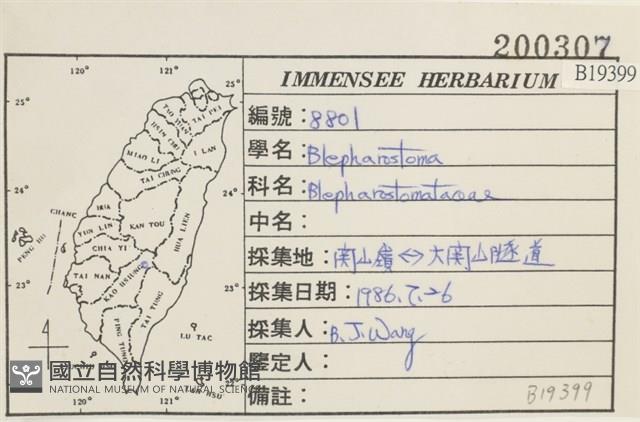 200307
B19399
IMMENSEE HERBARIUM
編號：8801
學名：Blepharostoma
科名：Blepharostomataceae
中名：
採集地：関山嶺↔大関山隧道
採集日期：1986.7.26
採集人：B.J.Wang
鑒定人：
備註：
B19399
120°
121°
25°
25°
TAO YUAN
TAI PEI
HSIN CHU
I LAN
MIAO LI
TAI CHUNG
24°
24°
CHANG HUA
NAN TOU
HUA LIEN
YUN LIN
PENG HU
CHIA YI
TAI NAN
KAO HSIUNG
23°
23°
TAI TUNG
PING TUNG
LU TAO
LAN HSU
120°
121°
國立自然科學博物館
NATIONAL MUSEUM OF NATURAL SCIENCE